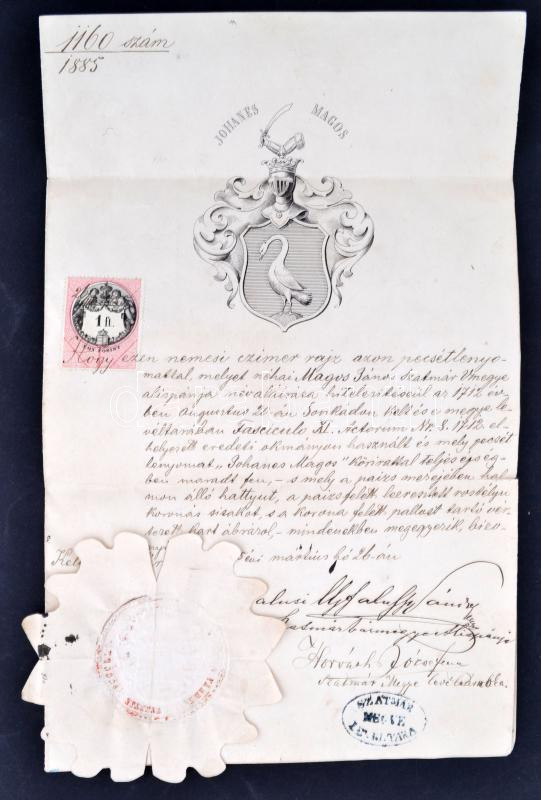 1160 szám
1885
JOHANES MAGOS
1 ft.
EGY FORINT
Hogy ezen nemesi czimer rajz azon pecsétlenyo-
mattal, melyet néhai Magos János Szatmár Vmegye
alispánja névaláirása hitelesitéseül az 1712 év-
ben augustus 22-án kelt és e megye le-
véltárában Fasciculo XI. Actorum Nr. 3. 1712. el-
helyezett eredeti okmányon használt és mely pecsét
lenyomat „Johanes Magos" körirattal teljes épség-
ben maradt fen, – s mely a paizs mezejében hal-
mon álló hattyut, a paizs felett leeresztett rostélyu
koronás sisakot, s a korona felett pallost tartó ver-
tezett kart ábrázol, – mindenekben megegyezik, bizo-
évi mártius hó 26-án
Ujfalussy Sándor
Szatmármegye alispánja
Horváth Józsefena
Szatmár Megye levéltárnoka.
SZATMÁR
MEGYE
LEVÉLTÁRA